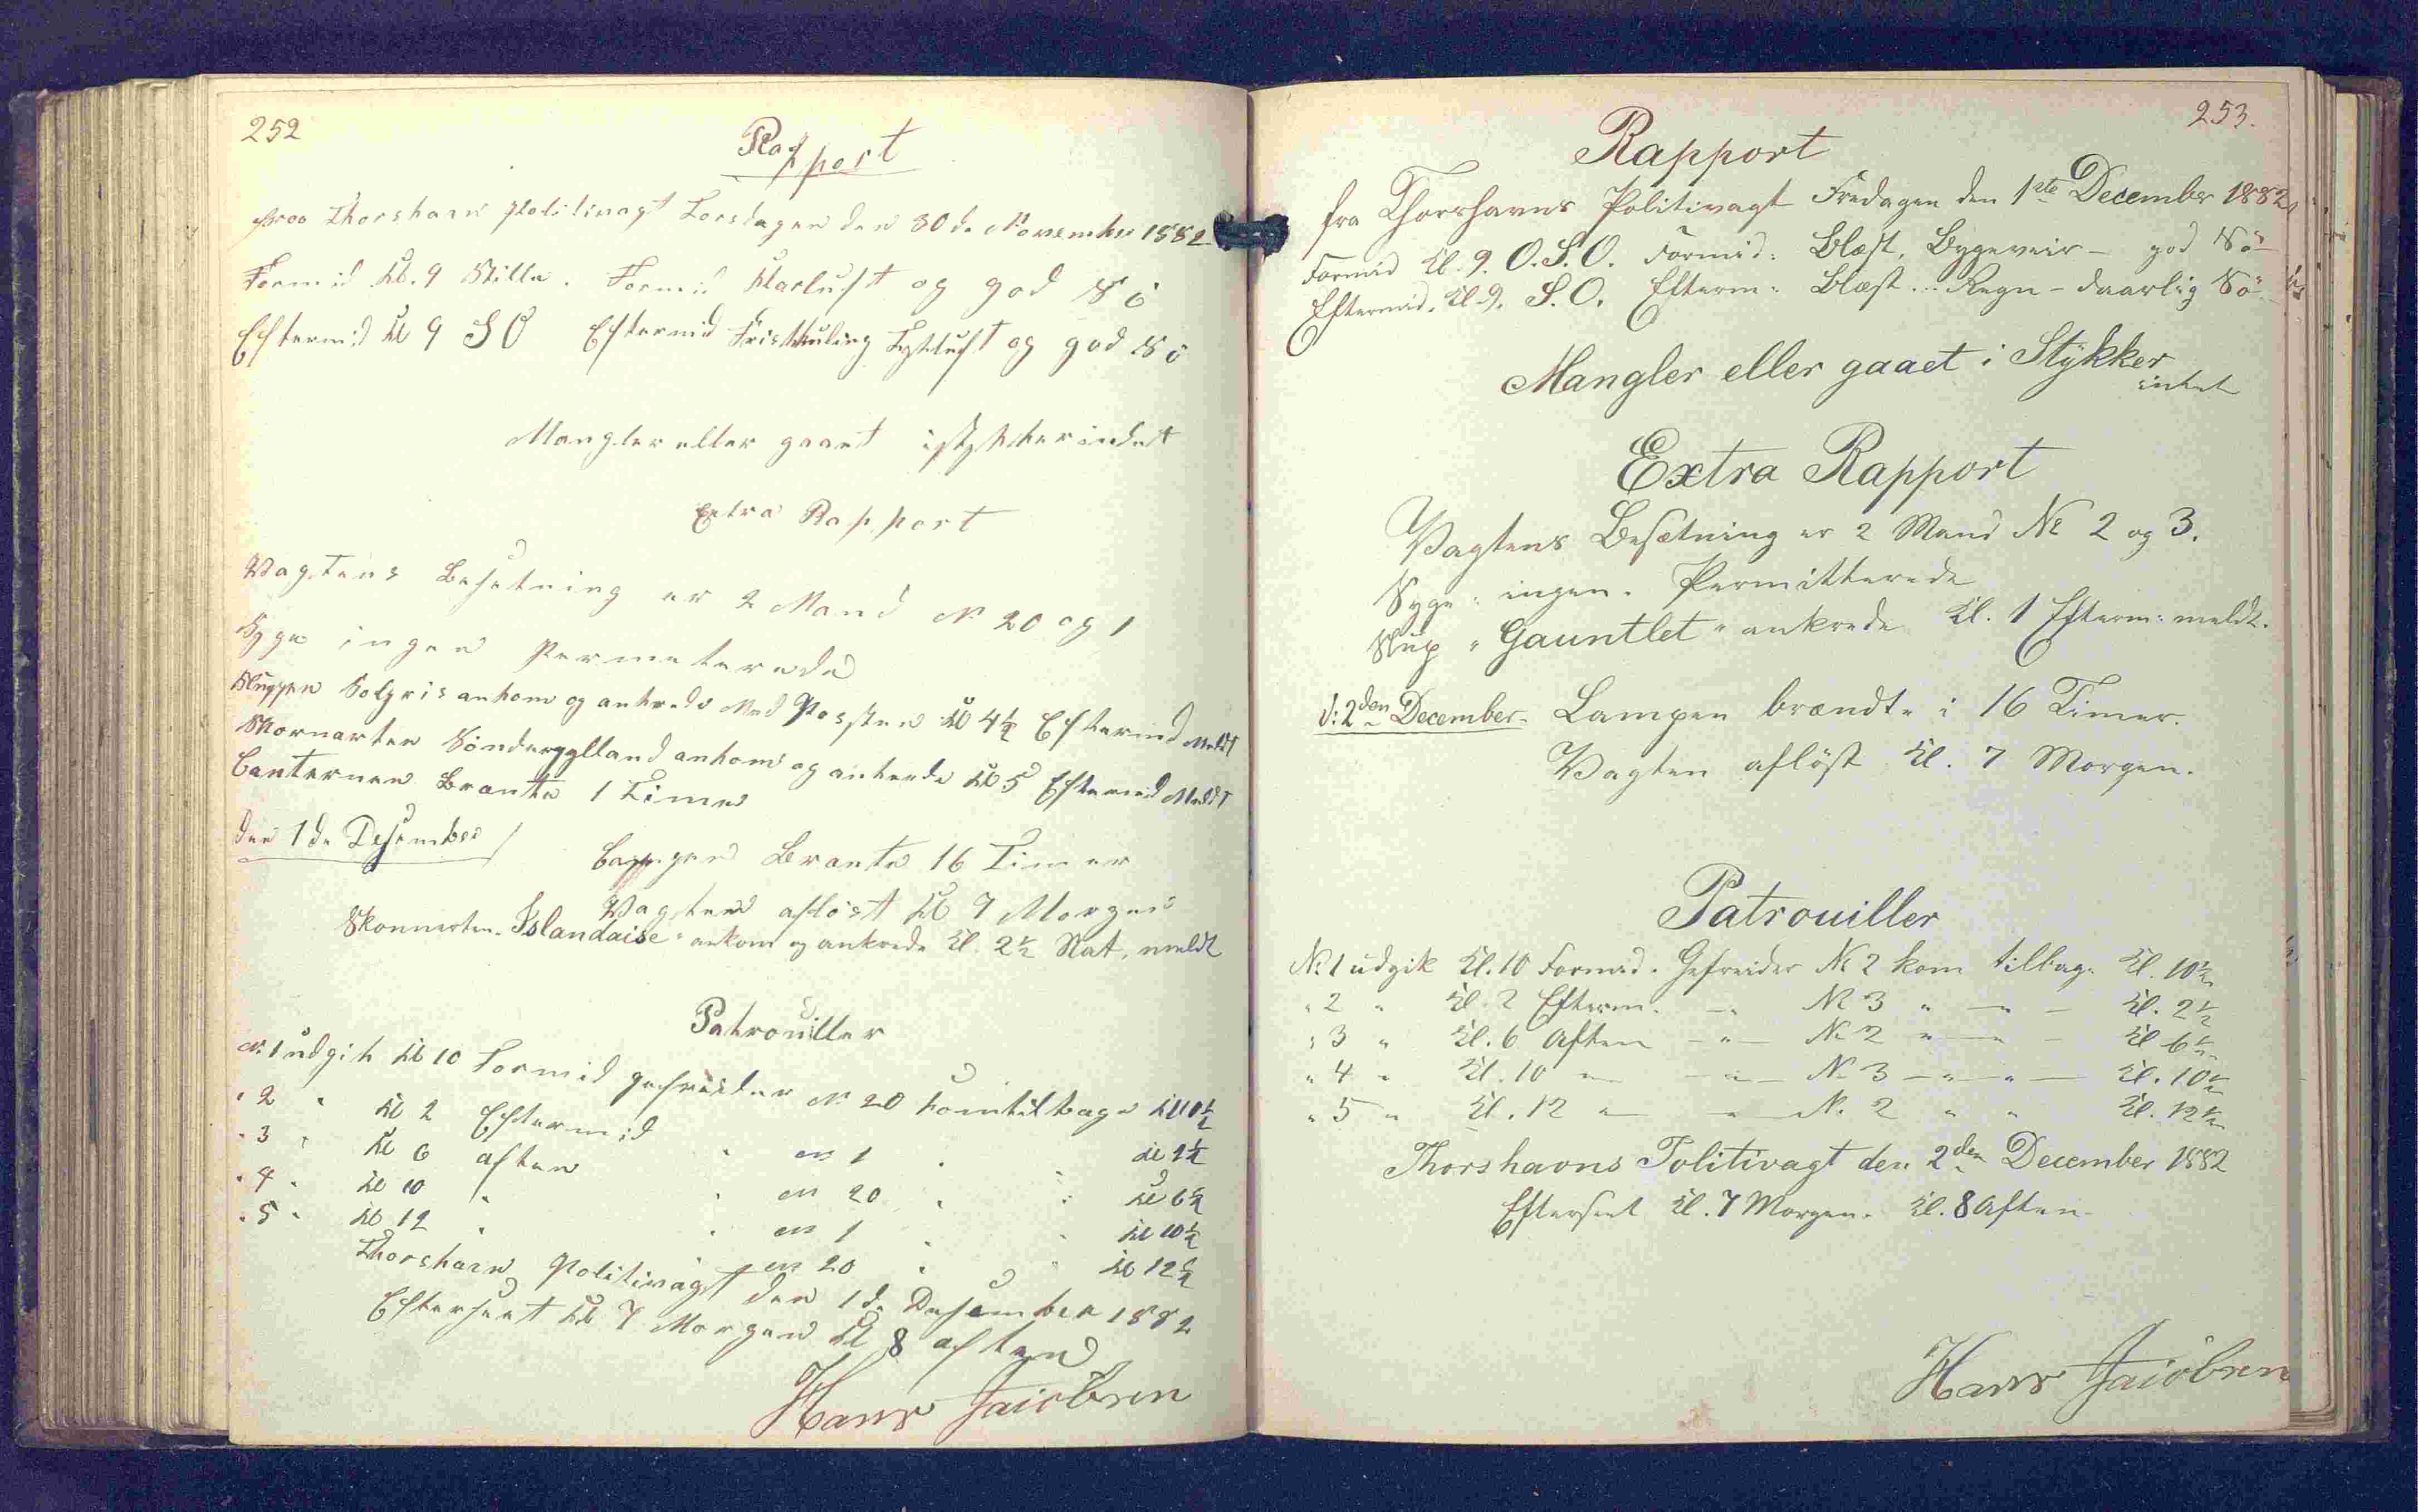 252
Rapport
fraa Thorshavn Politivagt Torsdagen den 30de November 1882
Formid Kl. 9 Stille. Formid Klarluft og god Sö
Eftermid Kl 9 SO Eftermid Friskkuling Tykluft og god Sö
Mangler eller gaaet istykker indet
Extra Rapport
Vagtens Besetning er 2 Mand N 20 og 1
Syge ingen Permeterede
Sluppen Solgris ankom og ankrede Med Posten Kl 4½ Eftermid Meldt
Skonnarten Sönderjylland ankom og ankrede Kl 5 Eftermid Meldt
Lanternen Brænte 1 Time
den 1de Desember
Lampen Brænte 16 Timer
Vagten aflöst Kl 7 Morgen
Skonnerten "Islandaise" ankom og ankrede Kl. 2½ Nat, meldt
Patrouiller
N. 1 udgik Kl 10 Formid gefreider N 20 kom tilbage Kl 10½
" 2 " Kl 2 Eftermid " N 1 " Kl 2½
" 3 " Kl 6 aften " N 20 " " Kl 6½
" 4 " Kl 10 " " N 1 " " Kl 10½
" 5 " Kl 12 " " N 20 " " Kl 12½
Thorshavn Politivagt den 1de Desember 1882
Efterseet Kl 7 Morgen Kl 8 aften
Hans Jacobsen
253.
Rapport
fra Thorshavns Politivagt Fredagen den 1ste December 1882
Formid Kl. 9. O.S.O. Formid: Blæst, Bygeveir - god Sö
Eftermid. Kl. 9. S.O. Efterm: Blæst. Regn - daarlig Sö.
Mangler eller gaaet i Stÿkker
intet
Extra Rapport
Vagtens Besætning er 2 Mand № 2 og 3.
Syge: ingen. Permitterede
Slup "Gauntlet" ankrede Kl. 1 Efterm: meldt.
d: 2den December. Lampen brændte i 16 Timer.
Vagten aflöst Kl. 7 Morgen.
Patrouiller
№ 1 udgik Kl. 10 Formid. Gefreider № 2 kom tilbage Kl. 10½
" 2 " Kl. 2 Efterm. — " № 3 " — " — Kl. 2½
" 3 " Kl. 6 Aften — " — № 2 " — " — Kl 6½
" 4 " Kl. 10 " — — " — № 3 — " — " — Kl. 10½
" 5 " Kl. 12 " — — " — № 2 " " Kl. 12½
Thorshavns Politivagt den 2den December 1882
Efterseet Kl. 7 Morgen. Kl. 8 Aften.
Hans Jacobsen